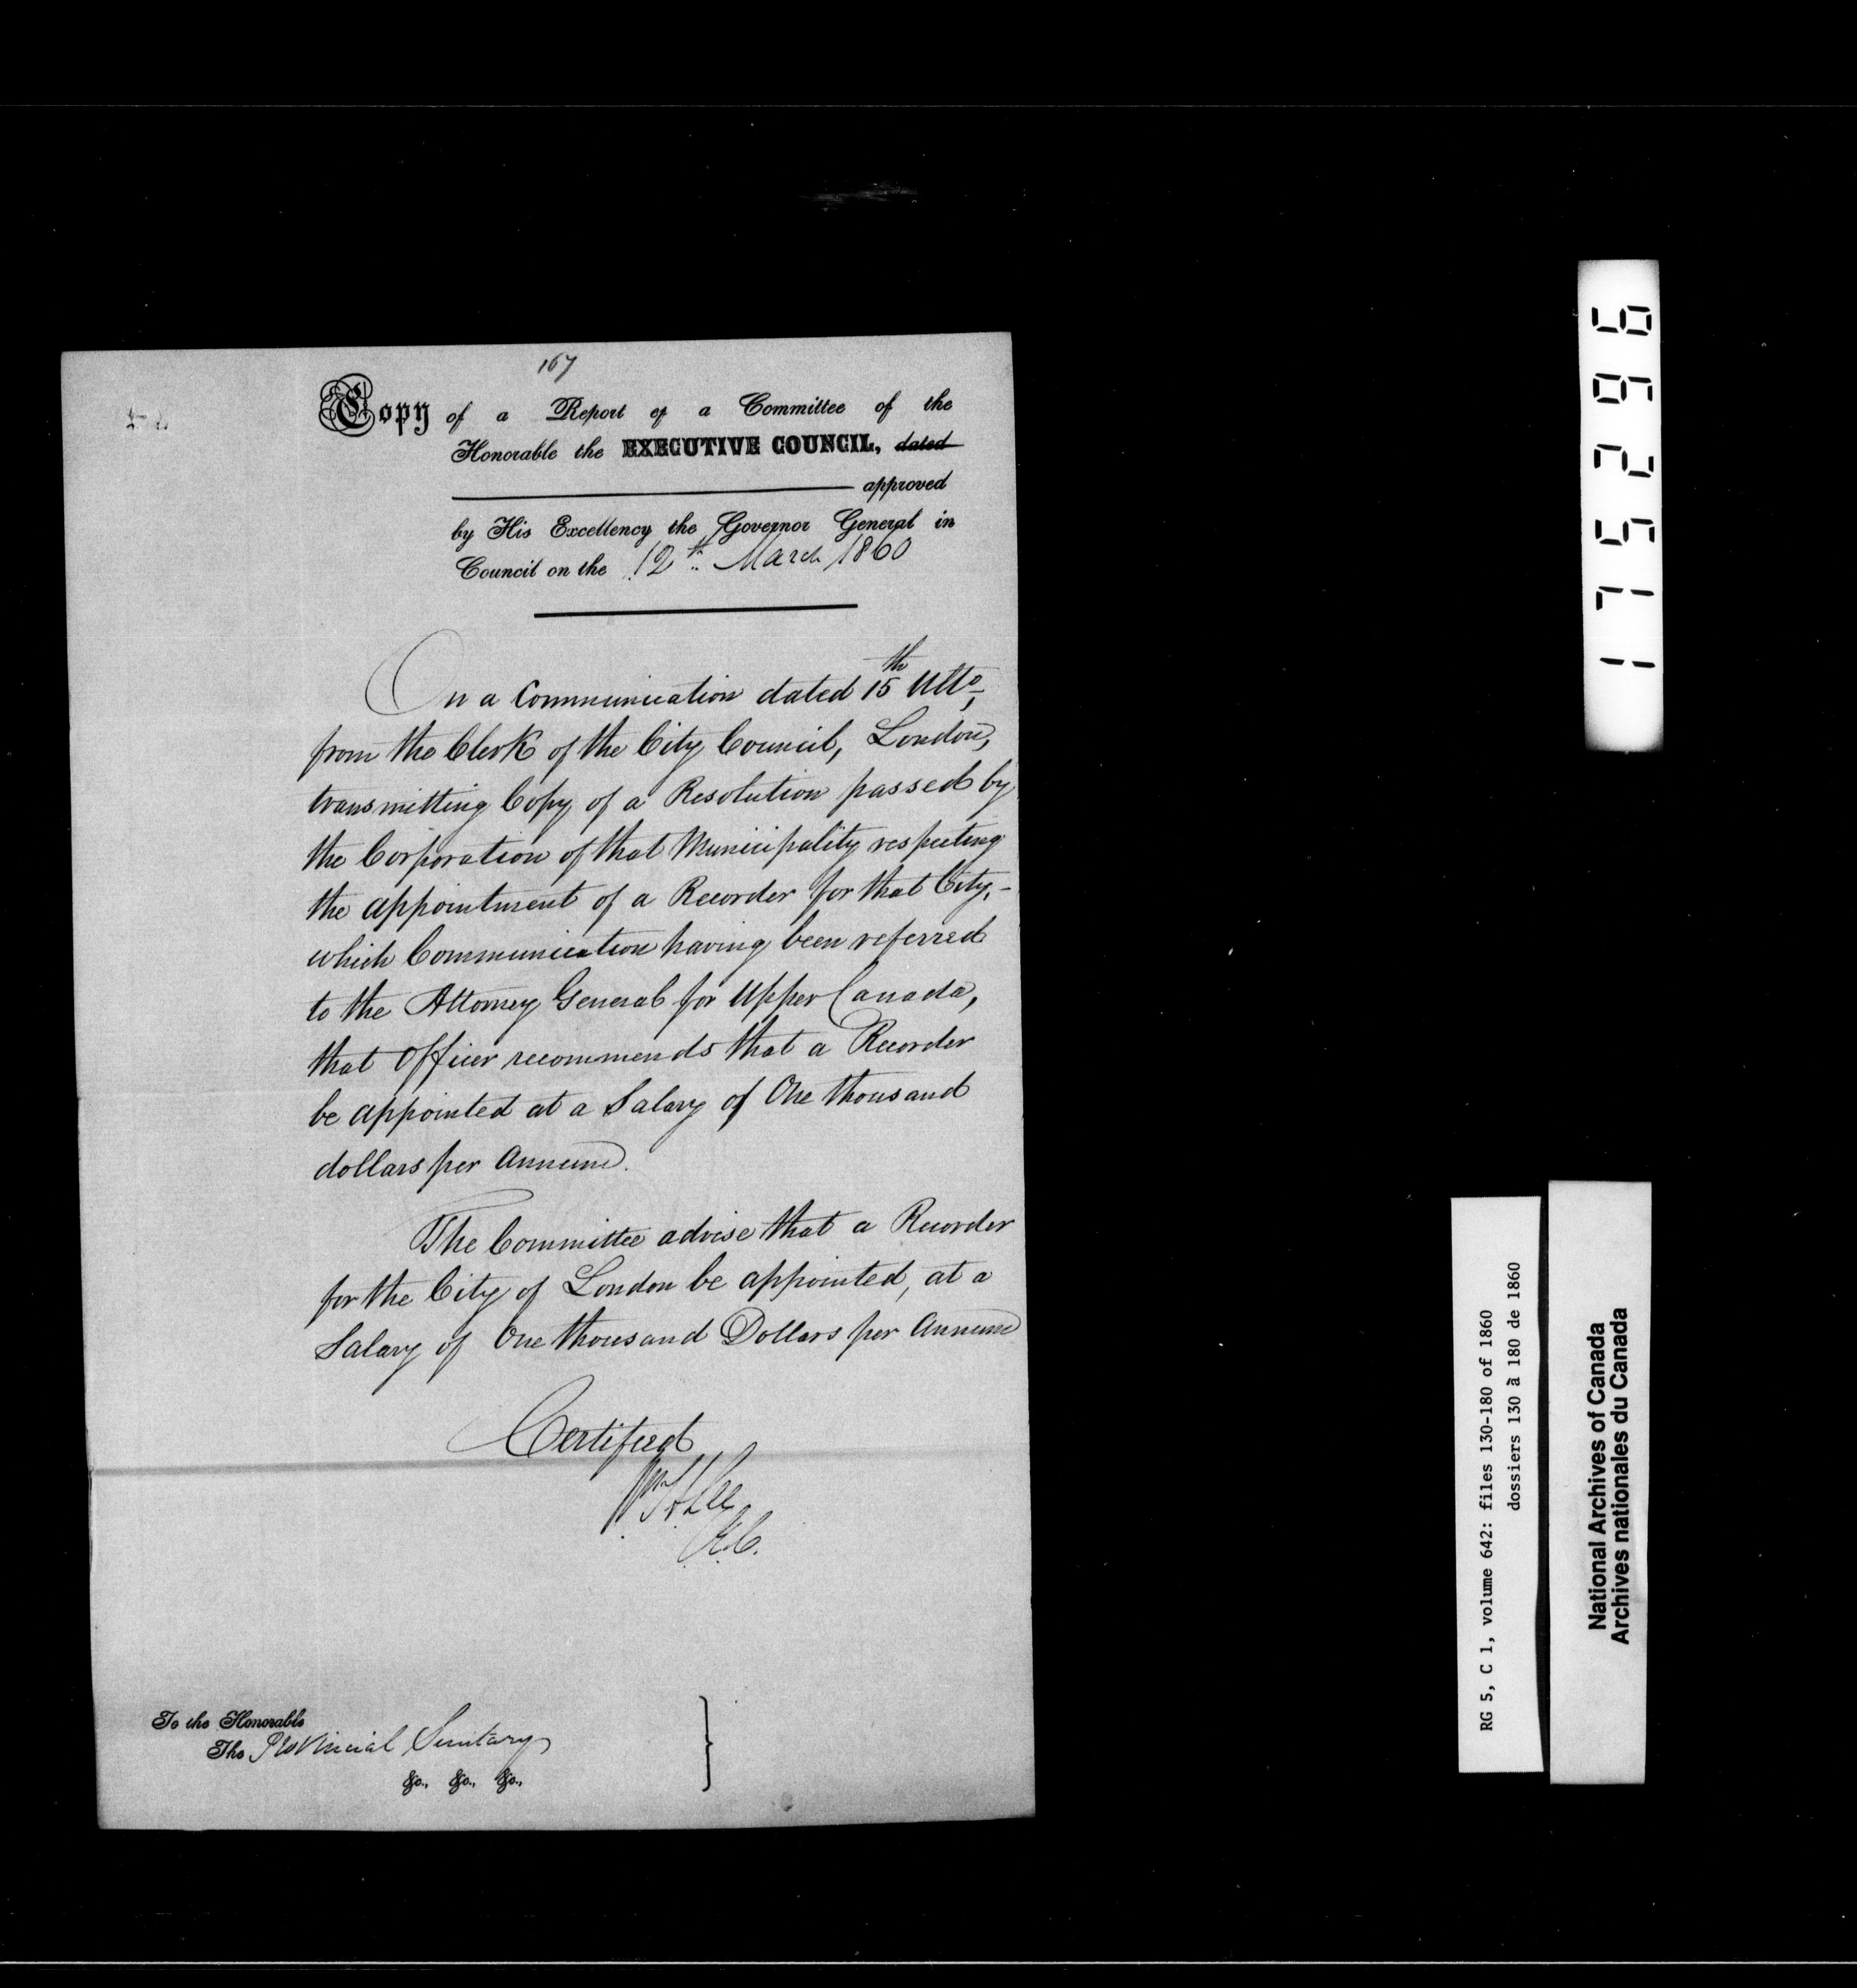 167
Copy of a Report of a Committee of the
Honorable the EXECUTIVE COUNCIL, dated
approved
by His Excellency the Governor General in
Council on the 12th March 1860
On a Communication dated 15th Ulto,
from the Clerk of the City Council, London,
transmitting Copy of a Resolution passed by
the Corporation of that Municipality respecting
the appointment of a Recorder for that City, -
which Communication having been referred
to the Attorney General for Upper Canada,
that Officer recommends that a Recorder
be appointed at a Salary of One thousand
dollars per Annum.
The Committee advise that a Recorder
for the City of London be appointed, at a
Salary of One thousand Dollars per Annum
Certified
Wm H Lee
C.E.C.
To the Honorable
The Provincial Secretary
&c., &c., &c.,
175296
RG 5, C 1, volume 642: files 130-180 of 1860
dossiers 130 à 180 de 1860
National Archives of Canada
Archives nationales du Canada